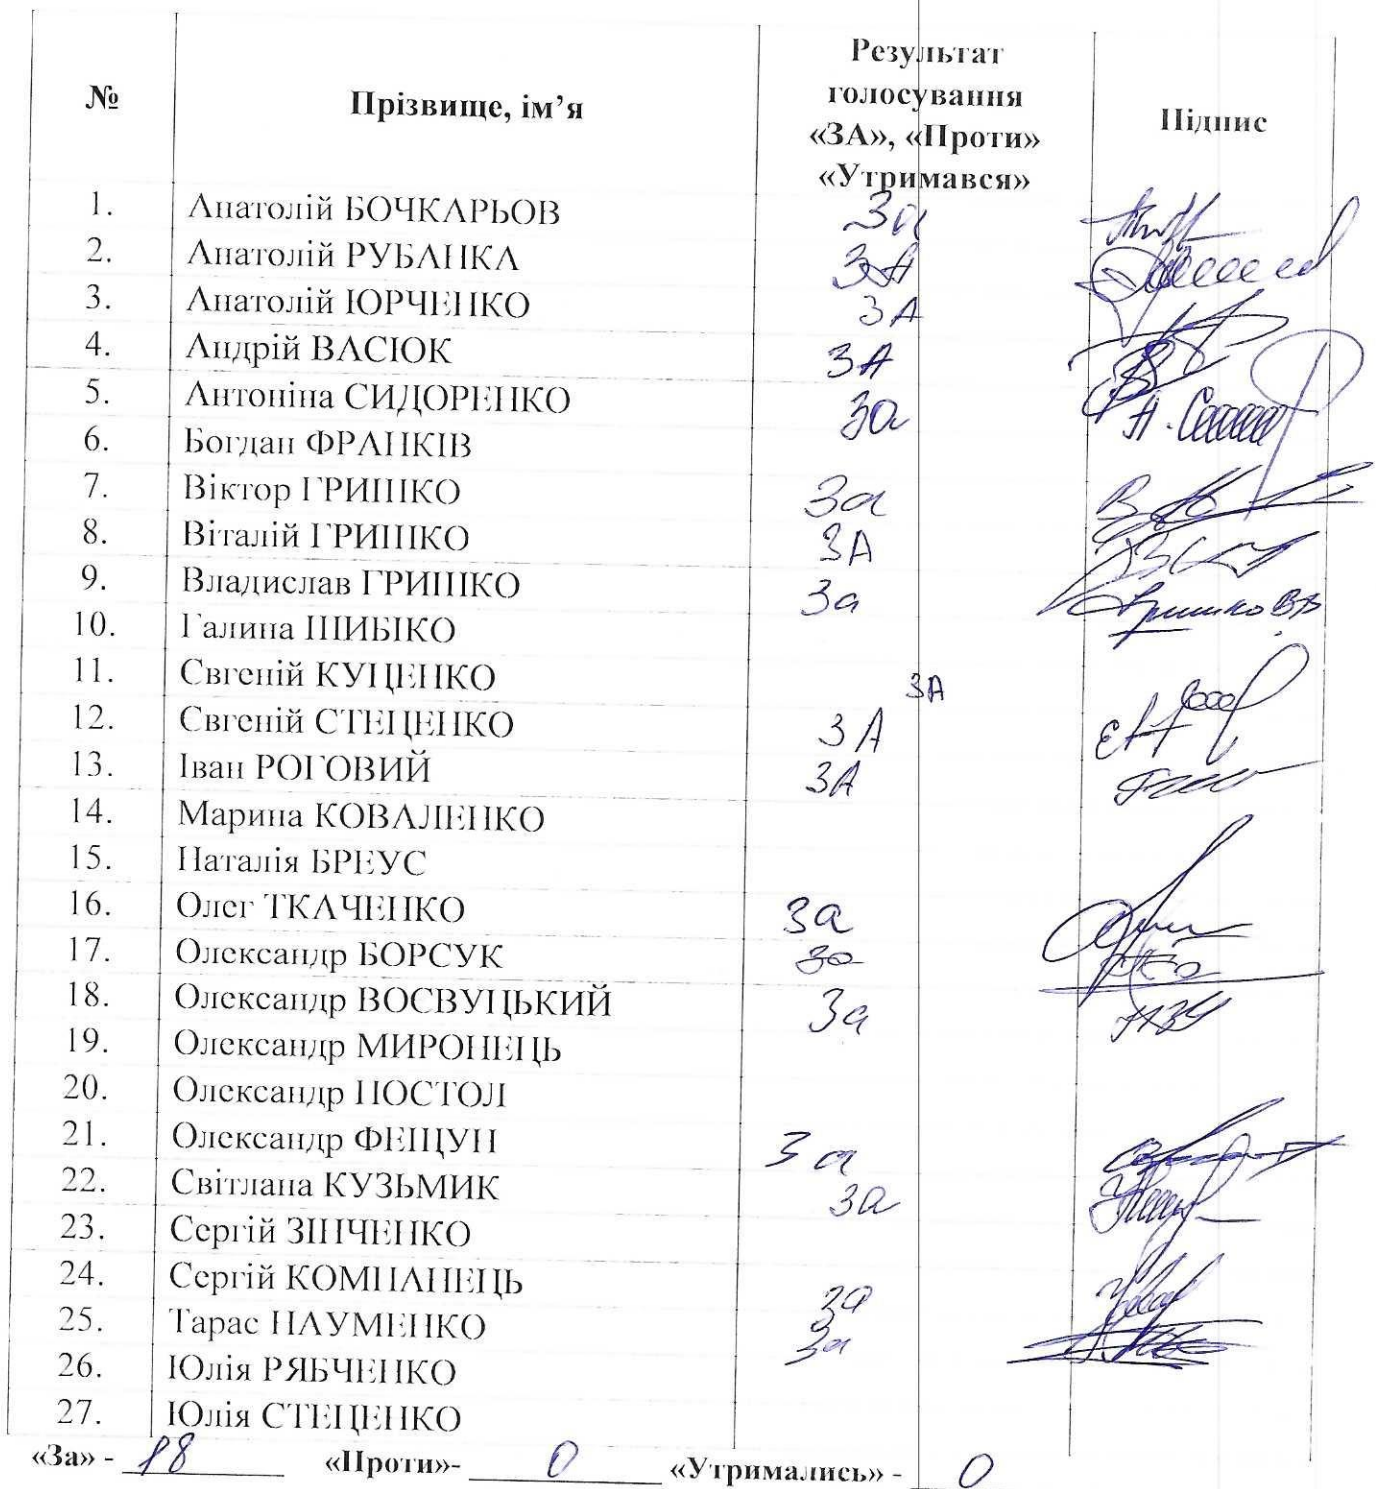 № Прізвище, ім’я Результат голосування «ЗА», «Проти» «Утримався» Підпис
1. Анатолій БОЧКАРЬОВ За
2. Анатолій РУБАНКА ЗА
3. Анатолій ЮРЧЕНКО ЗА
4. Андрій ВАСЮК ЗА
5. Антоніна СИДОРЕНКО За
6. Богдан ФРАНКІВ
7. Віктор ГРИШКО За
8. Віталій ГРИШКО ЗА
9. Владислав ГРИШКО За Гришко ВВ
10. Галина ШИБІКО
11. Євгеній КУЦЕНКО ЗА
12. Євгеній СТЕЦЕНКО ЗА
13. Іван РОГОВИЙ ЗА
14. Марина КОВАЛЕНКО
15. Наталія БРЕУС
16. Олег ТКАЧЕНКО За
17. Олександр БОРСУК За
18. Олександр ВОЄВУЦЬКИЙ За
19. Олександр МИРОНЕЦЬ
20. Олександр ПОСТОЛ
21. Олександр ФЕЩУН За
22. Світлана КУЗЬМИК За
23. Сергій ЗІНЧЕНКО
24. Сергій КОМПАНЕЦЬ За
25. Тарас НАУМЕНКО За
26. Юлія РЯБЧЕНКО
27. Юлія СТЕЦЕНКО
«За» - 18 «Проти»- 0 «Утримались» - 0